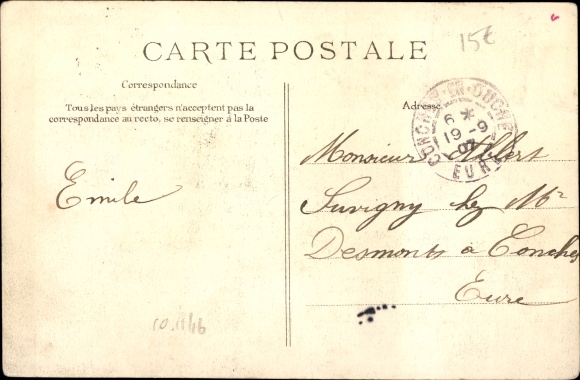 15€
CARTE POSTALE
Correspondance
Tous les pays étrangers n'acceptent pas la
correspondance au recto, se renseigner à la Poste
Adresse
CONCHES-EN-OUCHE
6 *
19 -9
EURE
Emile
Monsieur Albert
Suvigny chez Mr
Desmonts à Conches
Eure